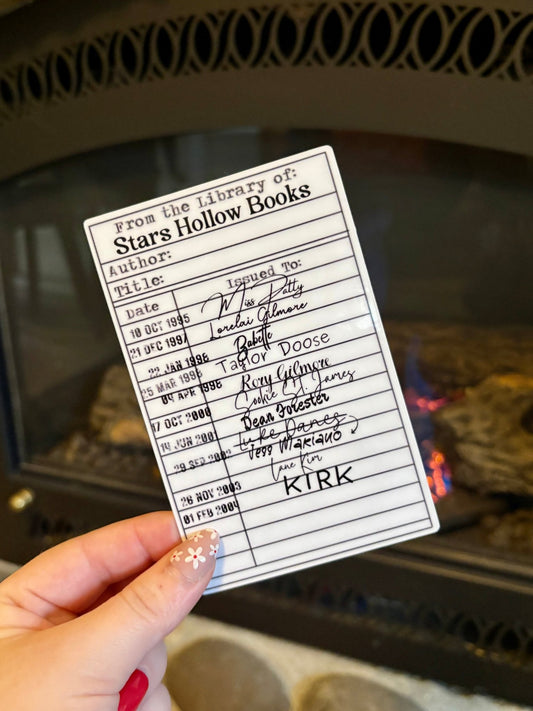 From the Library of:
Stars Hollow Books
Author:
Title:
Date Issued To:
10 OCT 1995 Miss Patty
21 DEC 1997 Lorelai Gilmore
22 JAN 1998 Babette
25 MAR 1998 Taylor Doose
04 APR 1998 Rory Gilmore
17 OCT 2000 Sookie St. James
14 JUN 2001 Dean Forester
29 SEP 2002 Luke Danes
Jess Mariano
Lane Kim
26 NOV 2003 KIRK
01 FEB 2004